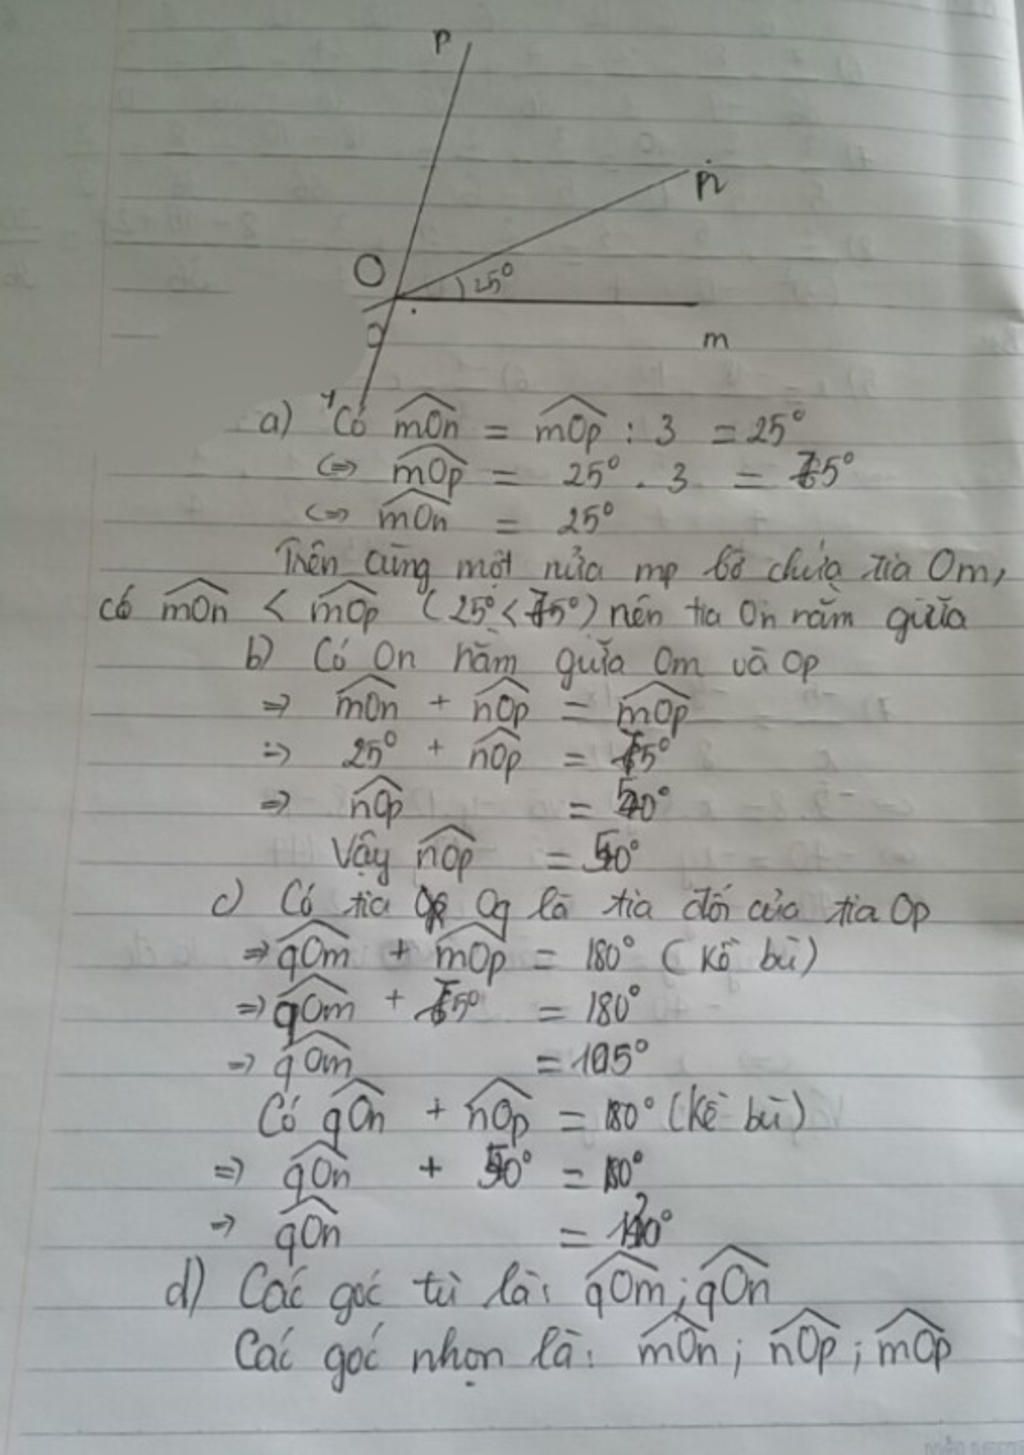 P
n
O
25°
q
m
a) Có mOn = mOp : 3 = 25°
<=> mOp = 25° . 3 = 75°
<=> mOn = 25°
Trên cùng một nửa mp bờ chứa tia Om,
có mOn < mOp (25° < 75°) nên tia On nằm giữa
b) Có On nằm giữa Om và Op
=> mOn + nOp = mOp
=> 25° + nOp = 75°
=> nOp = 50°
Vậy nOp = 50°
c) Có tia Oq là tia đối của tia Op
=> qOm + mOp = 180° (kề bù)
=> qOm + 75° = 180°
=> qOm = 105°
Có qOn + nOp = 180° (kề bù)
=> qOn + 50° = 180°
=> qOn =
d) Các góc tù là: qOm; qOn
Các góc nhọn là: mOn; nOp; mOp